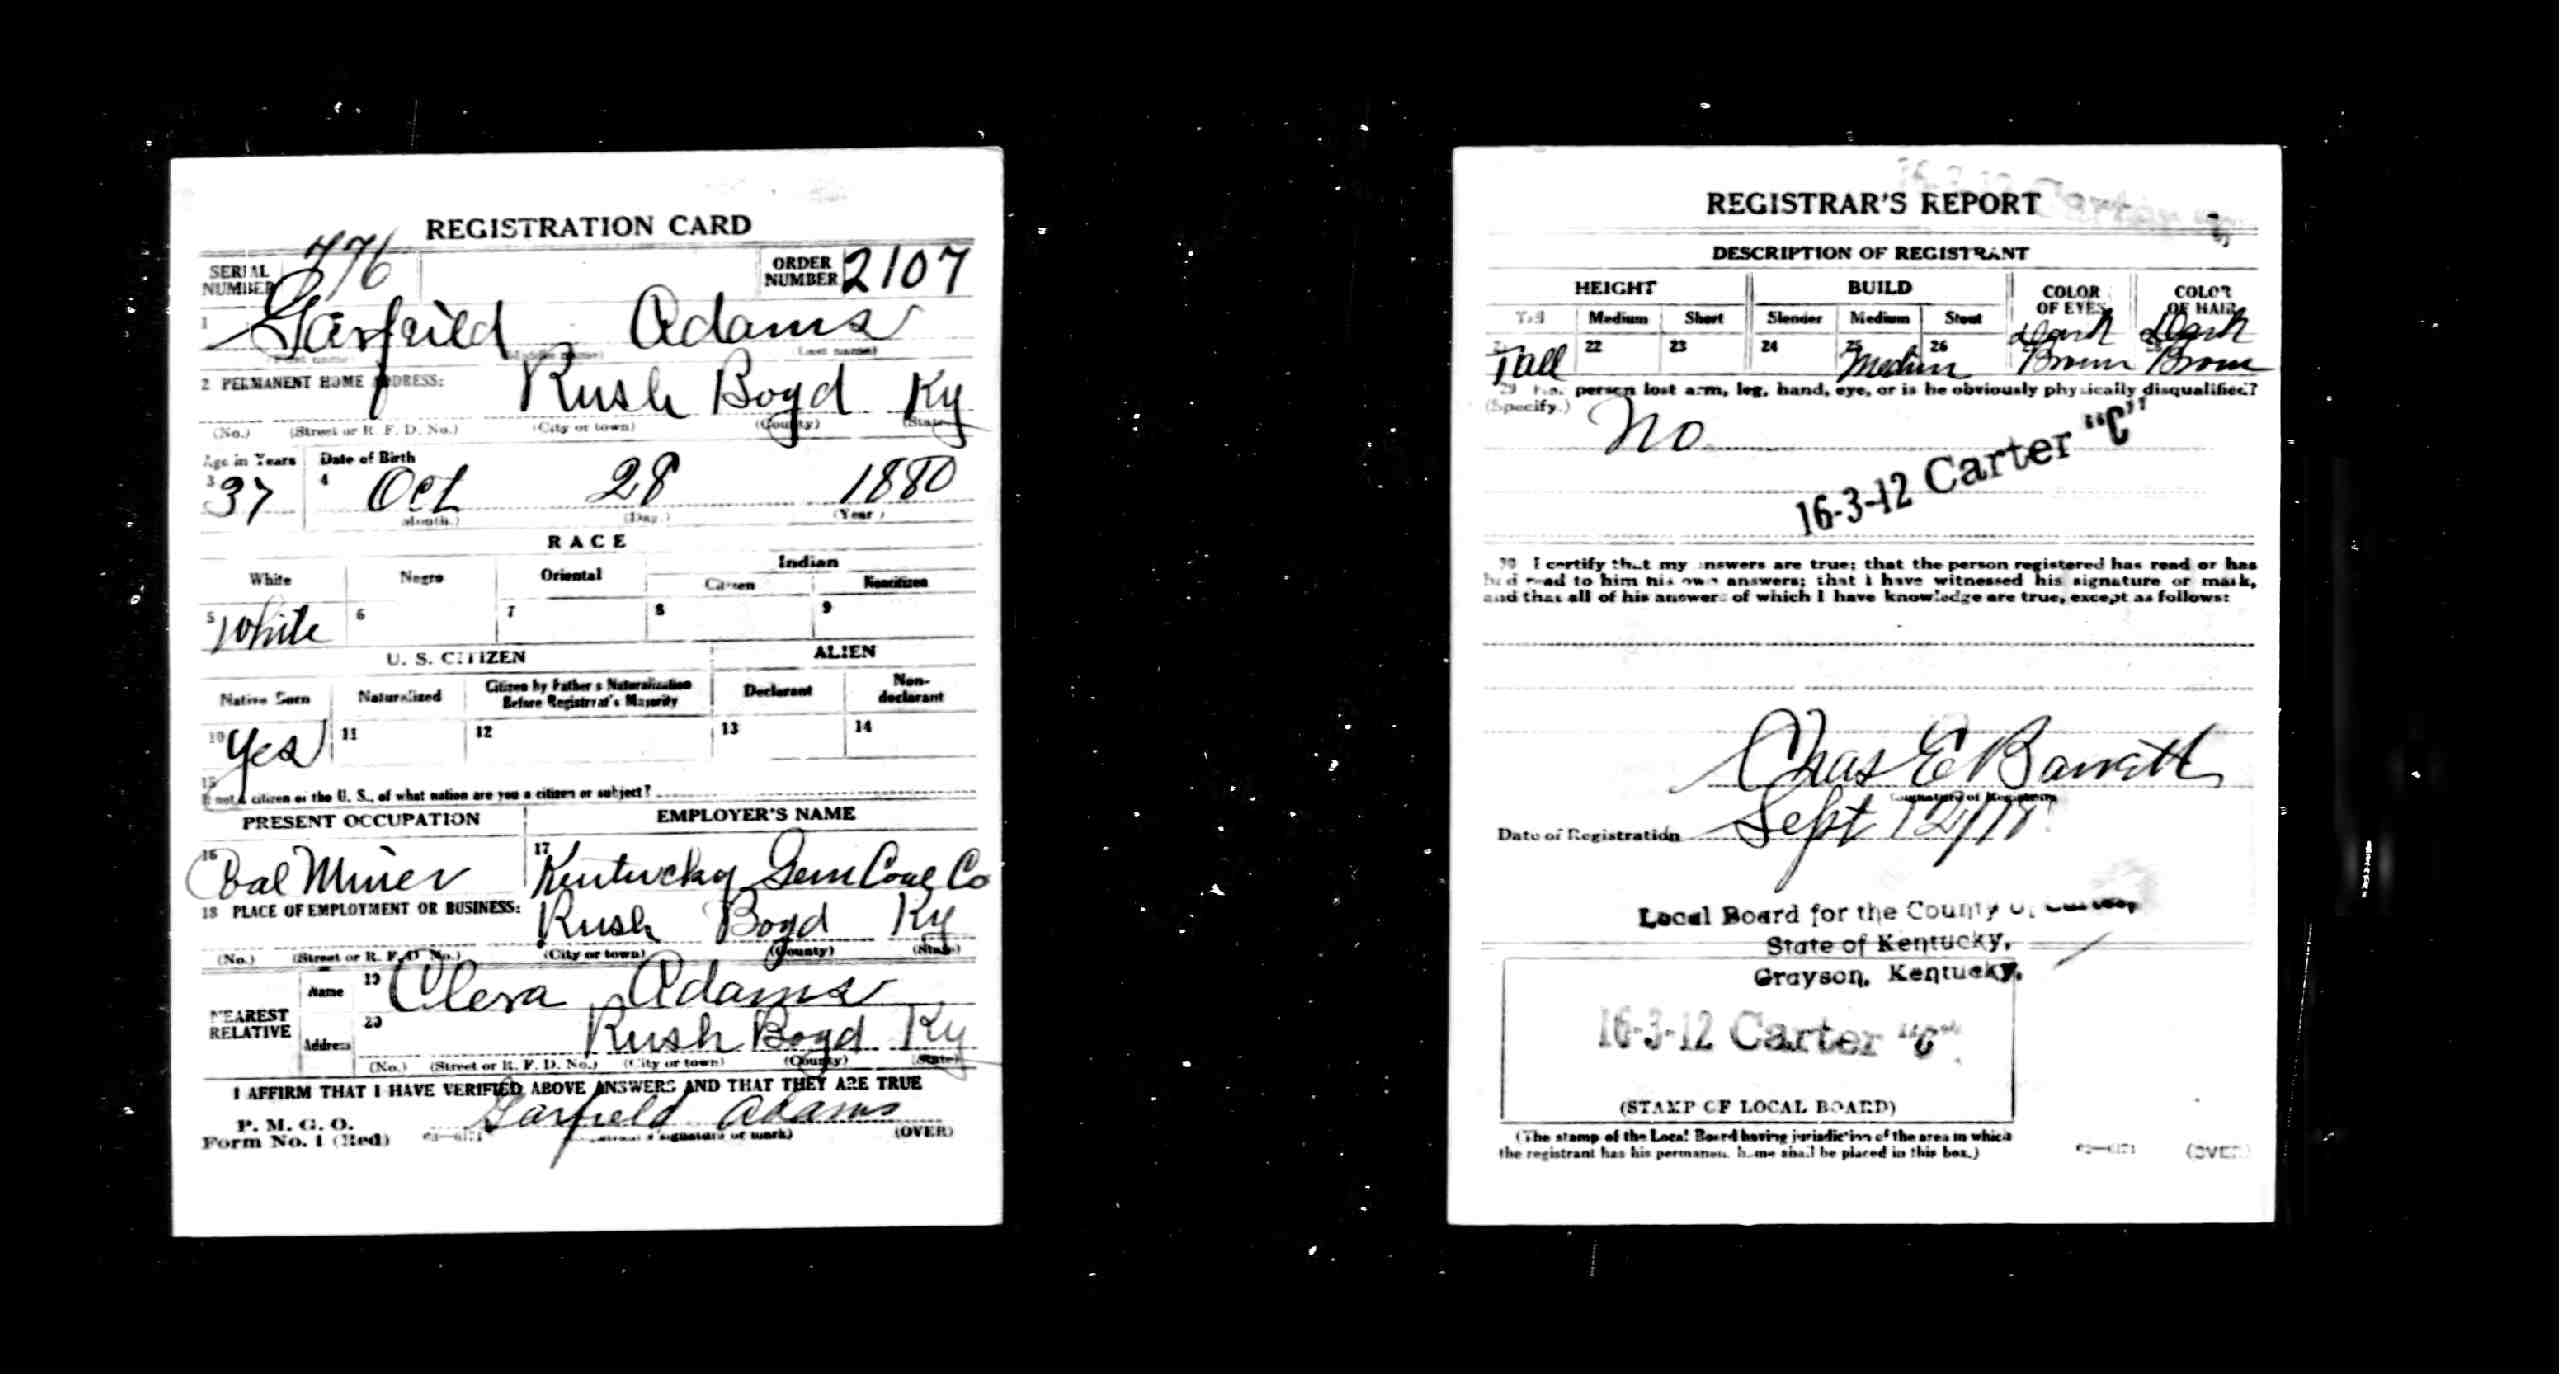 REGISTRATION CARD
SERIAL NUMBER 776 ORDER NUMBER 2107
1 Garfield Adams
(Last name)
2 PERMANENT HOME ADDRESS: Rush Boyd Ky
(No.) (Street or R. F. D. No.) (City or town) (County) (State)
Age in Years Date of Birth
3 37 4 Oct 28 1880
(Month.) (Day.) (Year.)
RACE
White Negro Oriental Indian
Citizen Noncitizen
5 White 6 7 8 9
U. S. CITIZEN ALIEN
Native Born Naturalized Citizen by Father's Naturalization Before Registrant's Majority Declarant Non-declarant
10 Yes 11 12 13 14
15 If not a citizen of the U. S., of what nation are you a citizen or subject?
PRESENT OCCUPATION EMPLOYER'S NAME
16 Coal Miner 17 Kentucky Gem Coal Co
18 PLACE OF EMPLOYMENT OR BUSINESS: Rush Boyd Ky
(No.) (Street or R. F. D. No.) (City or town) (County) (State)
NEAREST RELATIVE Name 19 Clera Adams
Address 20 Rush Boyd Ky
(No.) (Street or R. F. D. No.) (City or town) (County) (State)
I AFFIRM THAT I HAVE VERIFIED ABOVE ANSWERS AND THAT THEY ARE TRUE
P. M. G. O.
Form No. 1 (Red) Garfield Adams
signature or mark) (OVER)
REGISTRAR'S REPORT
DESCRIPTION OF REGISTRANT
HEIGHT BUILD COLOR OF EYES COLOR OF HAIR
Tall Medium Short Slender Medium Stout
Tall 22 23 24 25 Medium 26 Dark Brown Dark Brown
29 Has person lost arm, leg, hand, eye, or is he obviously physically disqualified?
(Specify.) No
16-3-12 Carter "C"
30 I certify that my answers are true; that the person registered has read or has
had read to him his own answers; that I have witnessed his signature or mark,
and that all of his answers of which I have knowledge are true, except as follows:
Chas E
(Signature of Registrar)
Date of Registration Sept 12/18
Local Board for the County of Carter,
State of Kentucky,
Grayson, Kentucky,
16-3-12 Carter "C"
(STAMP OF LOCAL BOARD)
(The stamp of the Local Board having jurisdiction of the area in which
the registrant has his permanent home shall be placed in this box.)
(OVER)